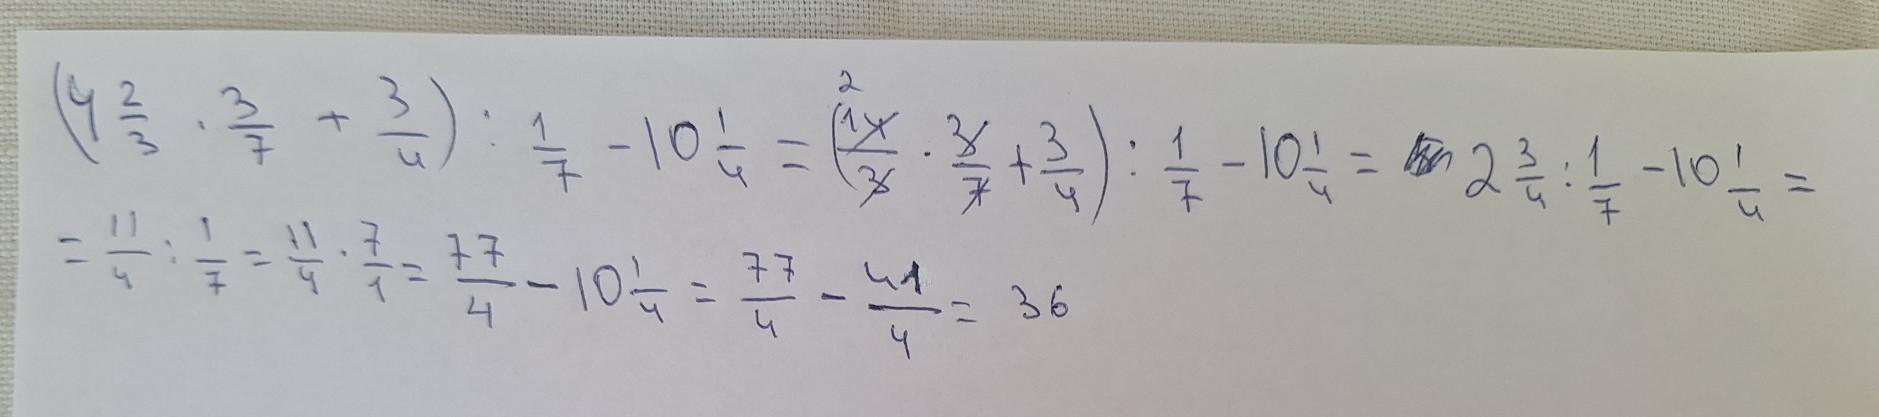 (4 2/3 · 3/7 + 3/4) : 1/7 - 10 1/4 = (14/3 · 3/7 + 3/4) : 1/7 - 10 1/4 = 2 3/4 : 1/7 - 10 1/4 =
= 11/4 : 1/7 = 11/4 · 7/1 = 77/4 - 10 1/4 = 77/4 - 41/4 = 36